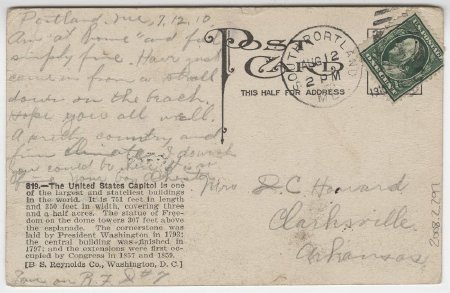 Portland, Me, 7, 12, 10,
Am "at home" and feel
simply fine. Have just
come in from a stroll
down on the beach.
Hope you all well.
A pretty country and
fine climate. I wish
you could be
POST
CARD
THIS HALF FOR ADDRESS
SOUTH PORTLAND
AUG 12
2 PM
ME.
819.—The United States Capitol is one
of the largest and stateliest buildings
in the world. It is 751 feet in length
and 350 feet in width, covering three
and a half acres. The statue of Free-
dom on the dome towers 307 feet above
the esplanade. The cornerstone was
laid by President Washington in 1793;
the central building was finished in
1797; and the extensions were first oc-
cupied by Congress in 1857 and 1859.
[B. S. Reynolds Co., Washington, D. C.]
on R.F.D. #2
Mrs D.C. Howard
Clarksville,
Arkansas
2008.2.297